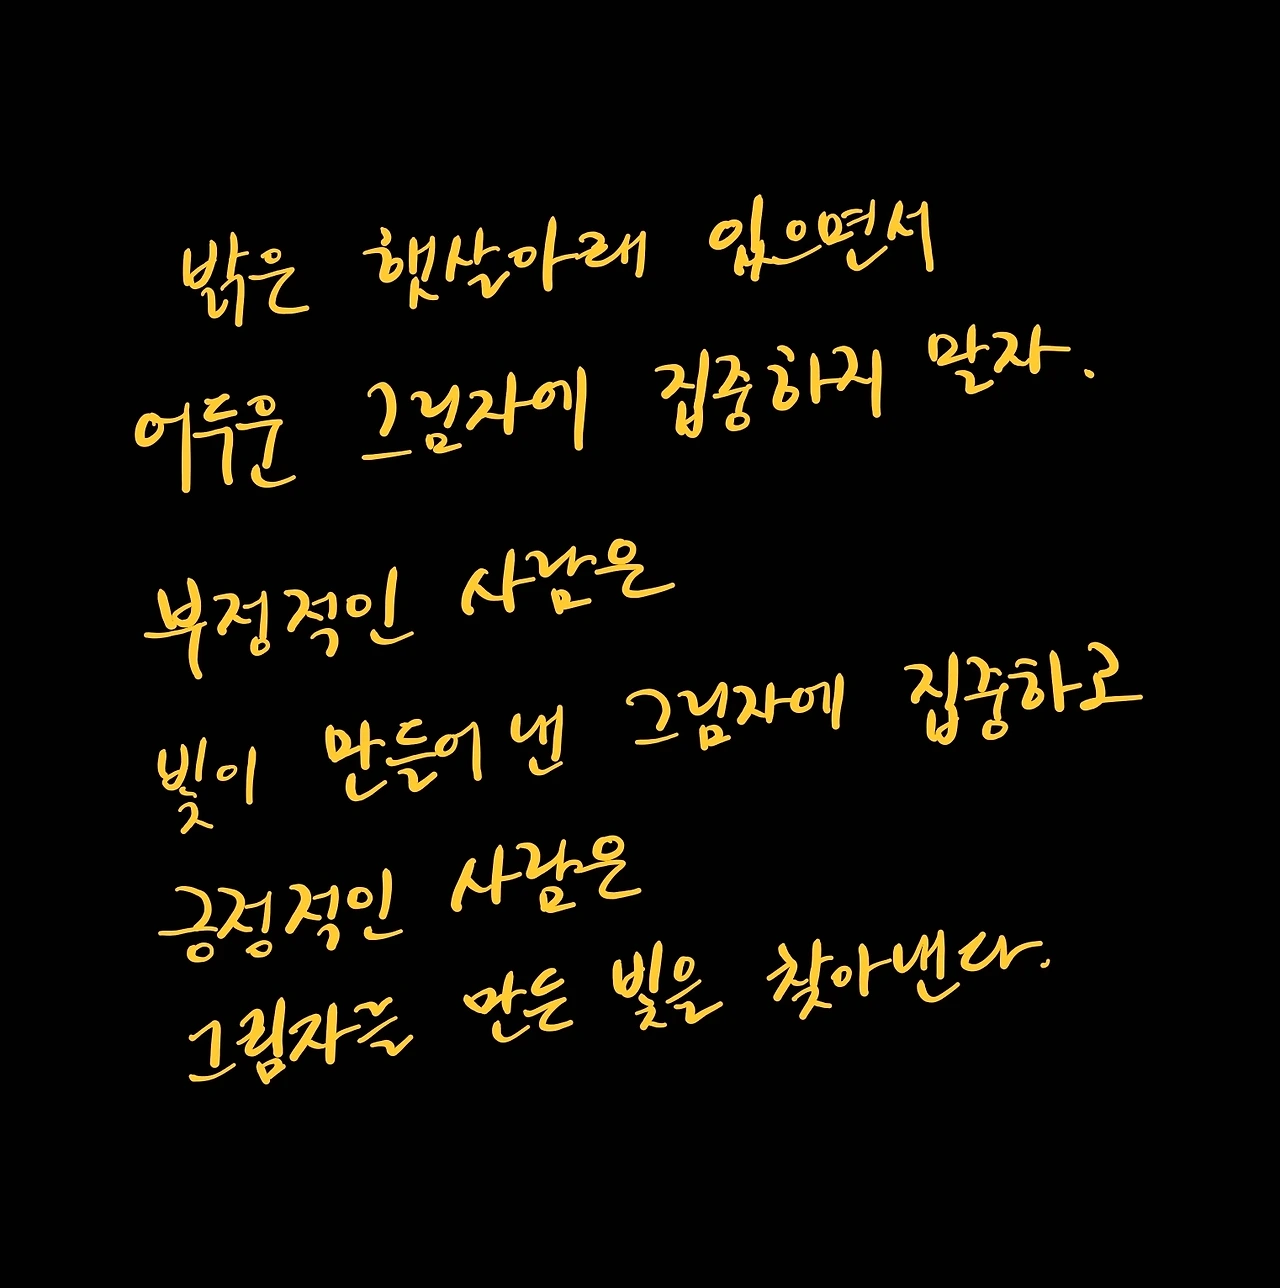 밝은 햇살아래 있으면서
어두운 그림자에 집중하지 말자.
부정적인 사람은
빛이 만들어 낸 그림자에 집중하고
긍정적인 사람은
그림자를 만든 빛을 찾아낸다.